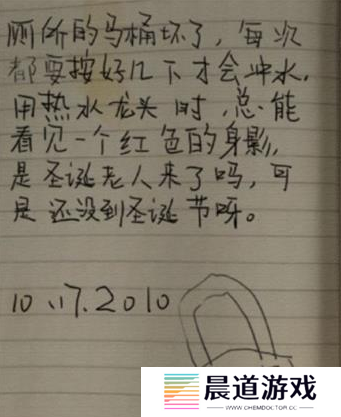 厕所的马桶坏了，每次
都要按好几下才会冲水.
用热水龙头时，总能
看见一个红色的身影，
是圣诞老人来了吗，可
是还没到圣诞节呀。
10.17.2010
晨道游戏
WWW.CHEMDOK.TOP.CC